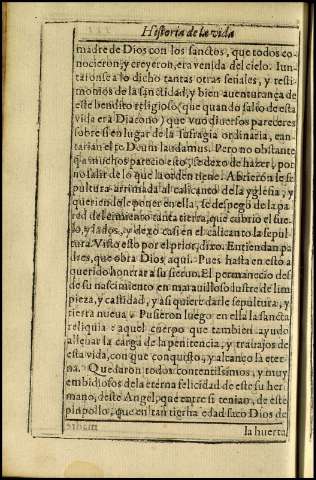 Historia de la vida
madre de Dios con los sanctos, que todos co-
nocieron, y creyeron, era venida del cielo. Iun-
taronse a lo dicho tantas otras señales, y testi-
monios de la sanctidad, y bien auenturança de
este bendito religioso (que quando salio de esta
vida era Diacono) que vuo diuersos pareceres
sobre si en lugar de la sufragia ordinaria, can-
tarian el Te Deum laudamus. Pero no obstante
q̃ a muchos parecio esto, se dexo de hazer, por
no salir de lo que la orden tiene. Abrieron le se
pultura arrimada al calicanto de la yglesia, y
queriendole poner en ella, se despego de la pa
red del cimiento tanta tierra, que cubrio el sue-
lo, y lados, y dexo casi en el calicanto la sepul-
tura. Visto esto por el prior, dixo. Entiendan pa
dres, que obra Dios aqui. Pues hasta en esto a
querido honrrar a su sieruo. El permanecio des
de su nascimiento en marauilloso lustre de lim
pieza, y castidad, y asi quiere darle sepultura, y
tierra nueua. Pusieron luego en ella la sancta
reliquia de aquel cuerpo que tambien ayudo
a lleuar la carga de la penitencia, y trabajos de
esta vida, con que conquisto, y alcanço la eter-
na. Quedaron todos contentissimos, y muy
embidiosos de la eterna felicidad de este su her-
mano, deste Angel, que entre si tenian, de este
pinpollo, que en tan tierna edad saco Dios de
la huerta